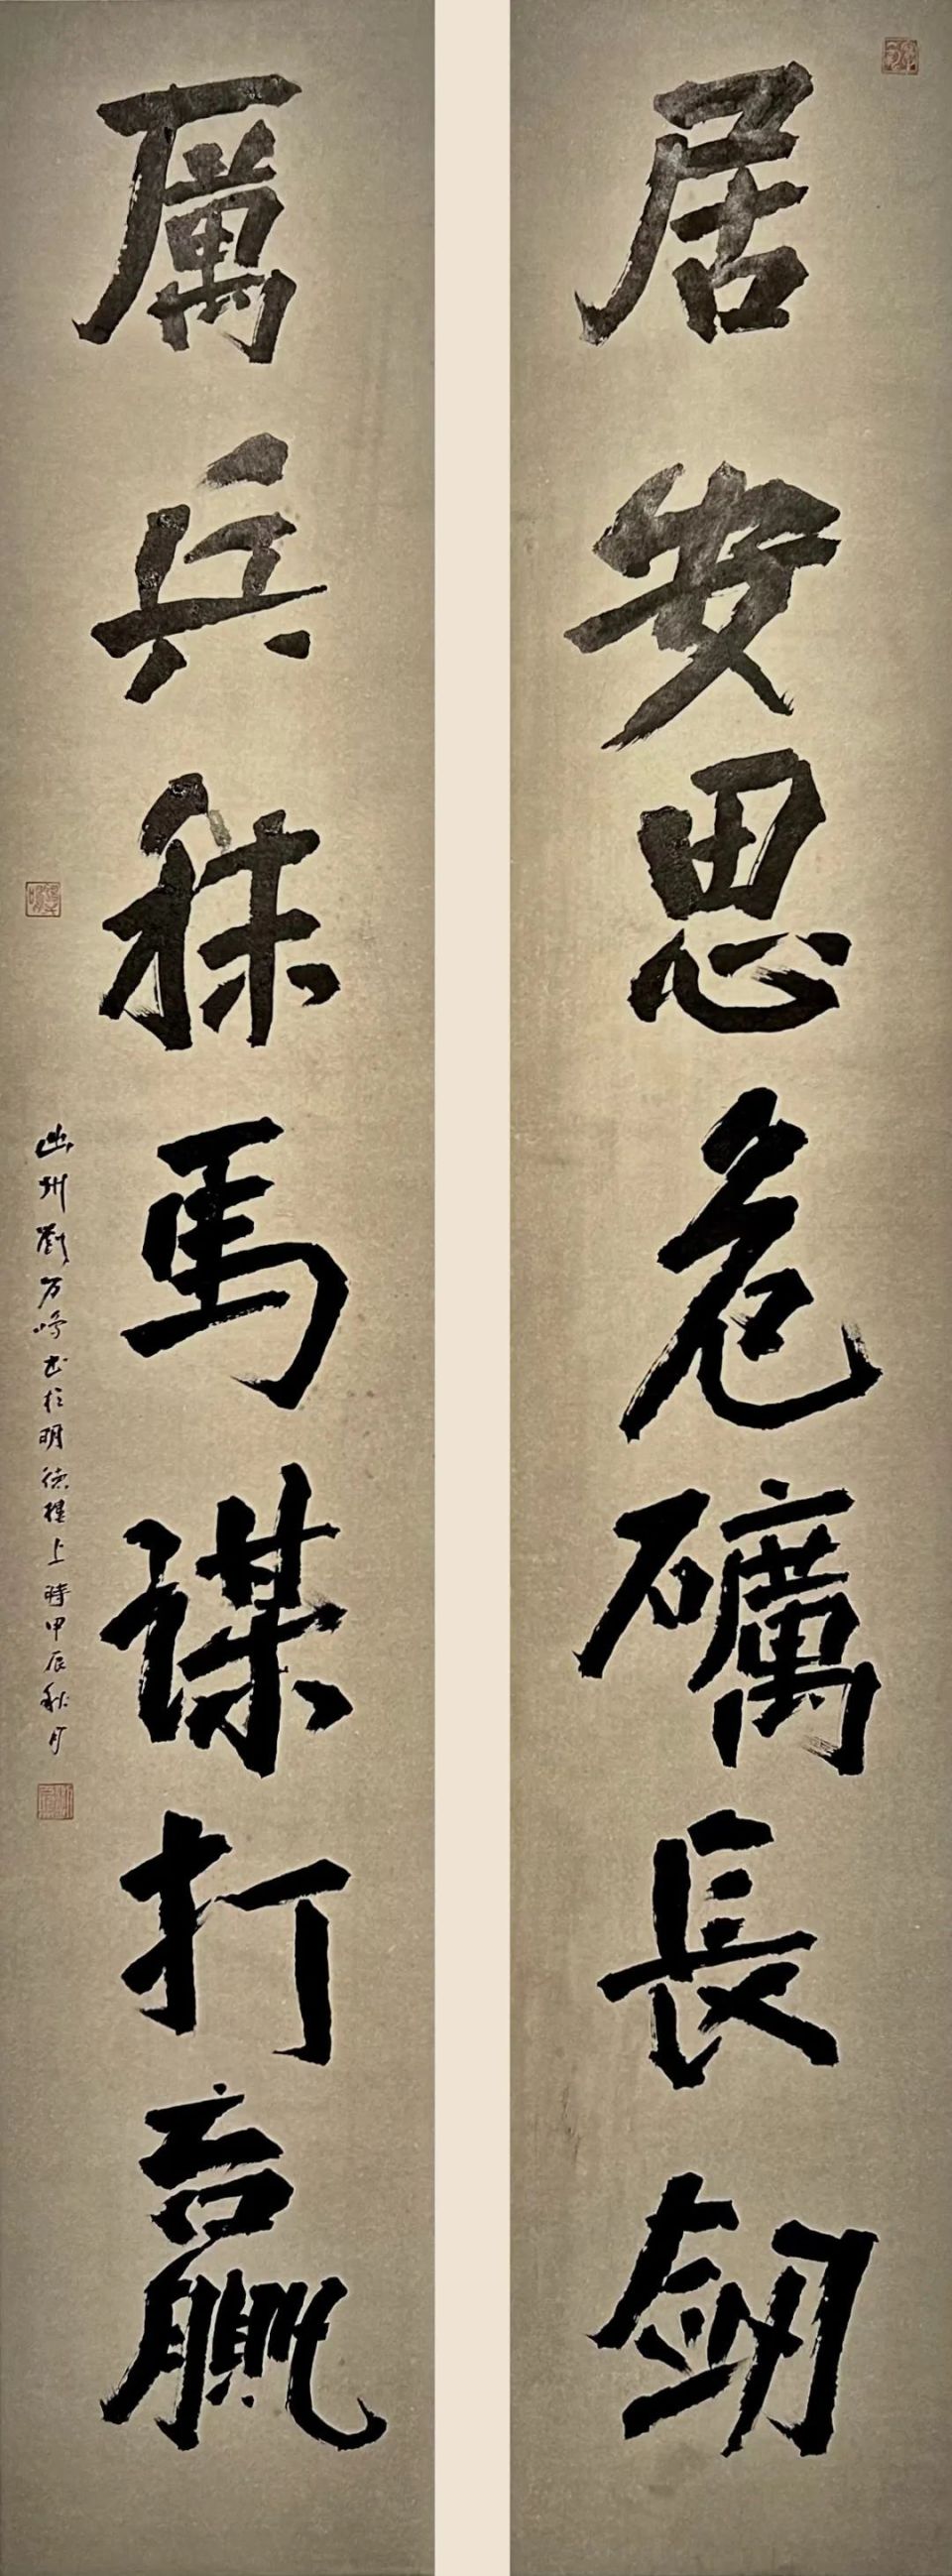 居安思危礪長劒
厲兵秣馬謀打贏
幽州劉万峰书於明德樓上時甲辰秋月